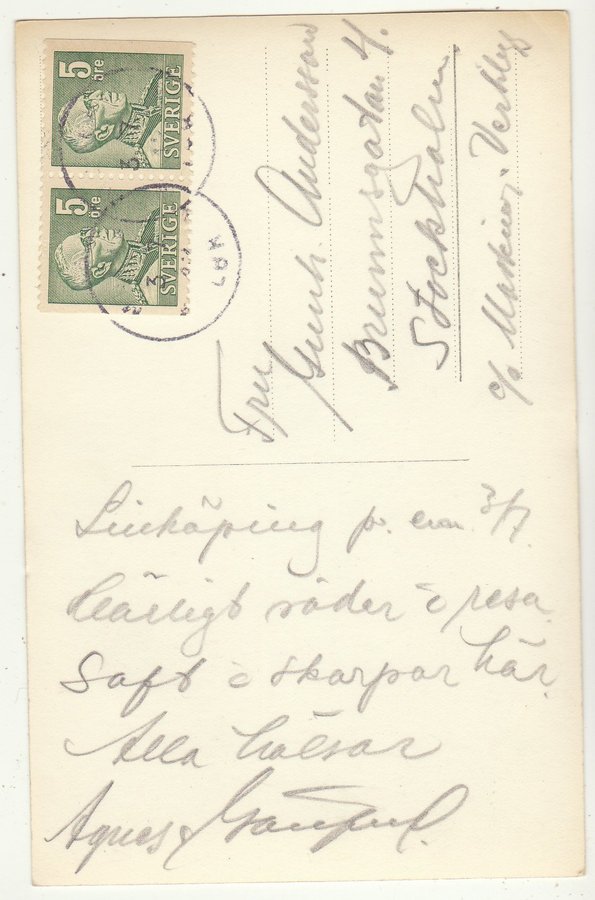 5
öre
SVERIGE
5
öre
SVERIGE
LBK
Fru
Gunh. Andersson
Brunnsgatan 4.
Stockholm
c/o Maskin
Linköping p. em 3/7.
Härligt väder o resa.
Saft o skorpor här.
Alla hälsar
Agnes